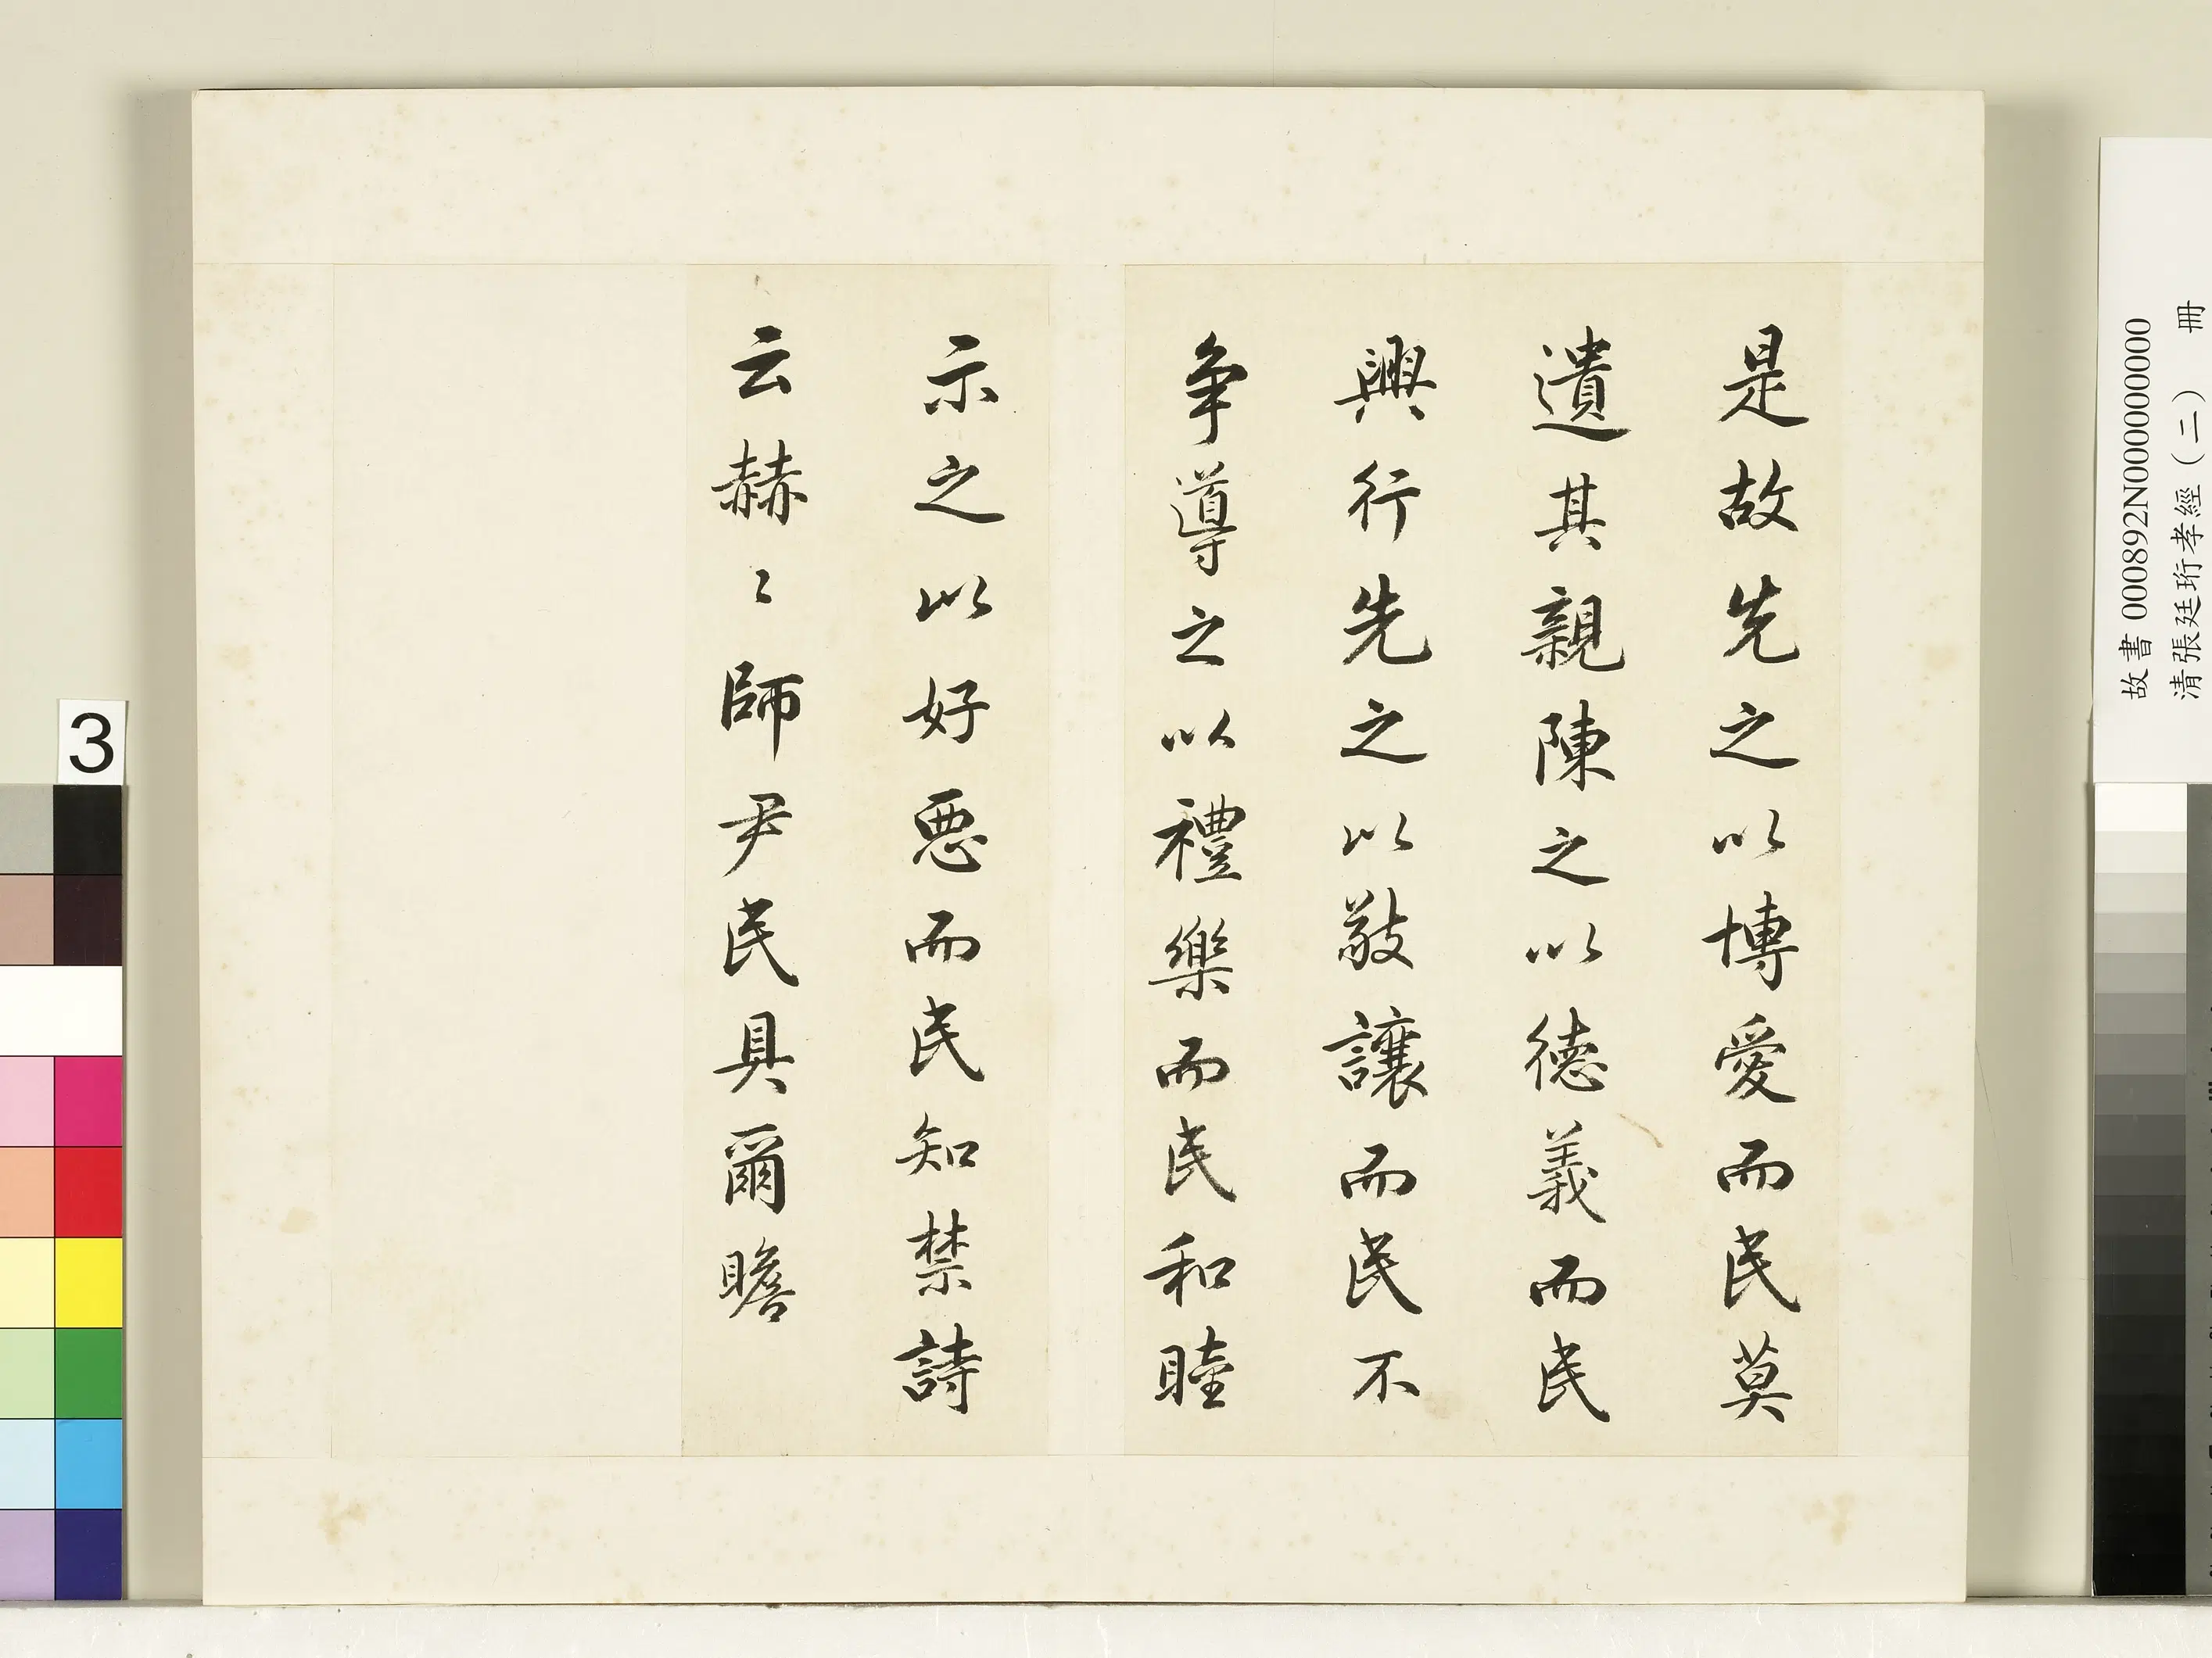 是故先之以博愛而民莫
遺其親陳之以德義而民
興行先之以敬讓而民不
争導之以禮樂而民和睦
示之以好惡而民知禁詩
云赫〻師尹民具爾瞻
故書 000892N000000000
清張廷珩孝經（二） 冊
3